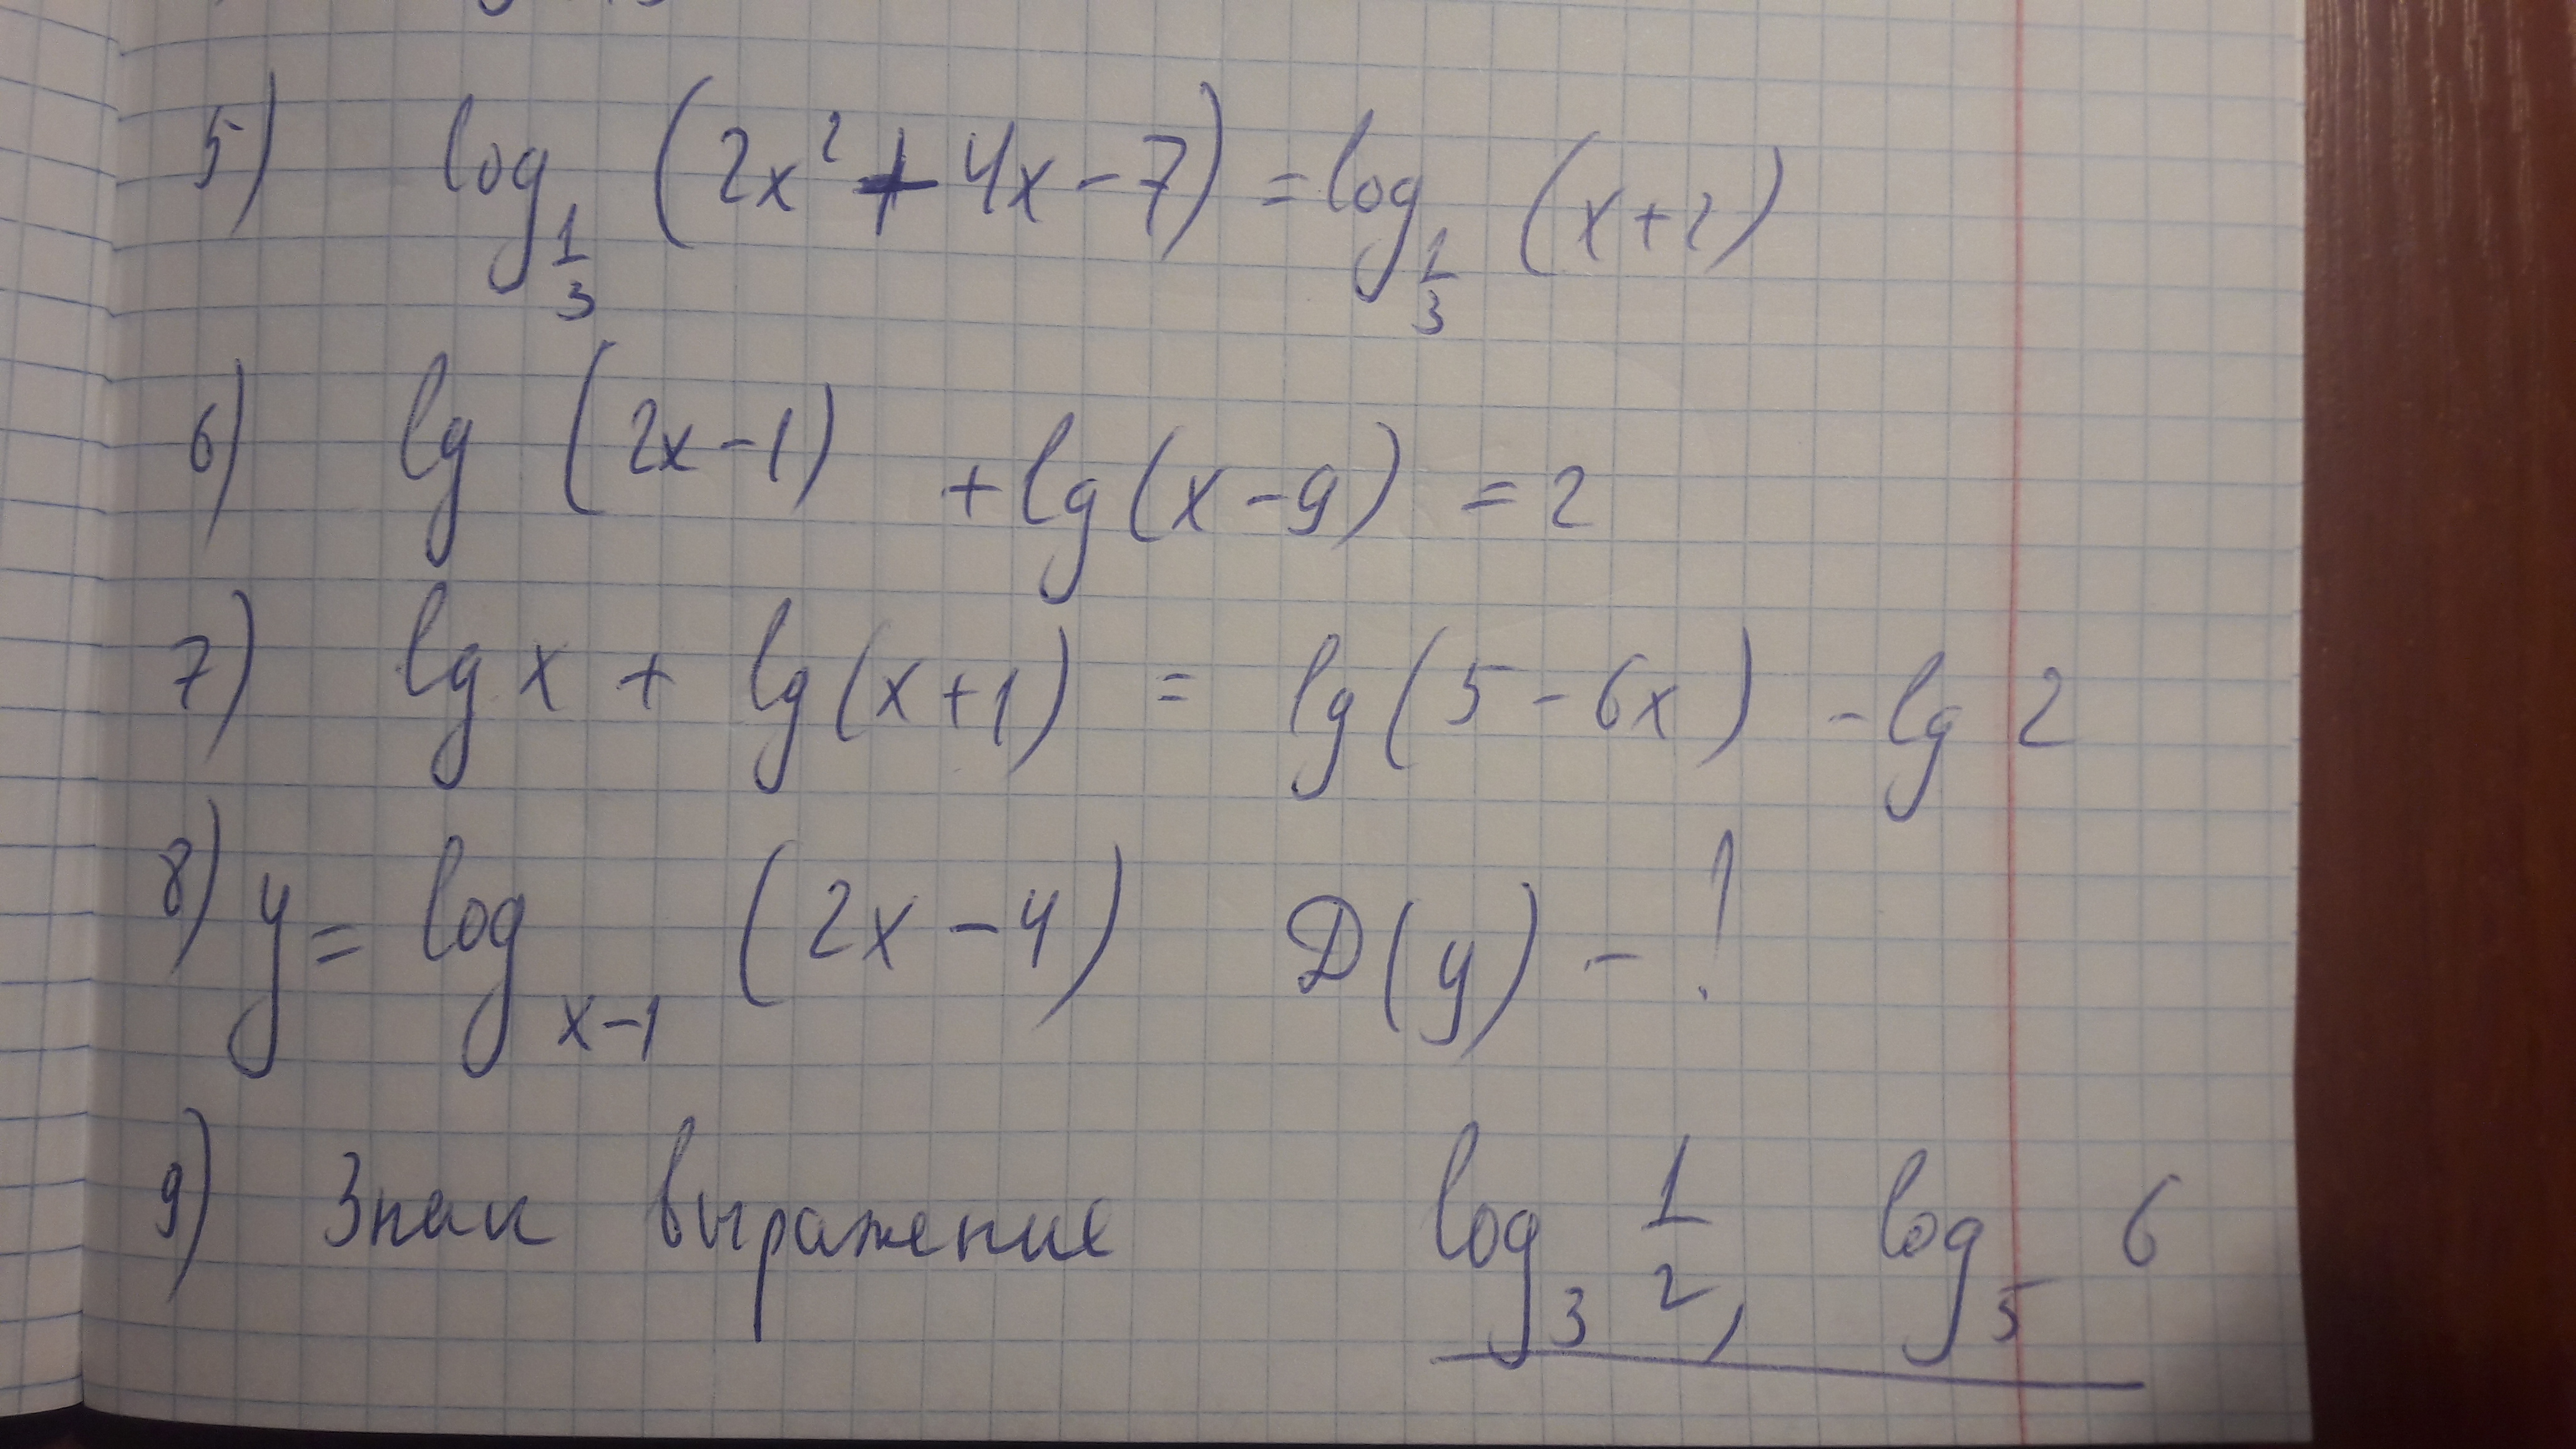 5) log_{1/3} (2x² + 4x - 7) = log_{1/3} (x+2)
6) lg (2x-1) + lg (x-9) = 2
7) lg x + lg (x+1) = lg (5-6x) - lg 2
8) y = log_{x-1} (2x-4) D(y) - !
9) Знак выражение log_3 1/2, log_5 6